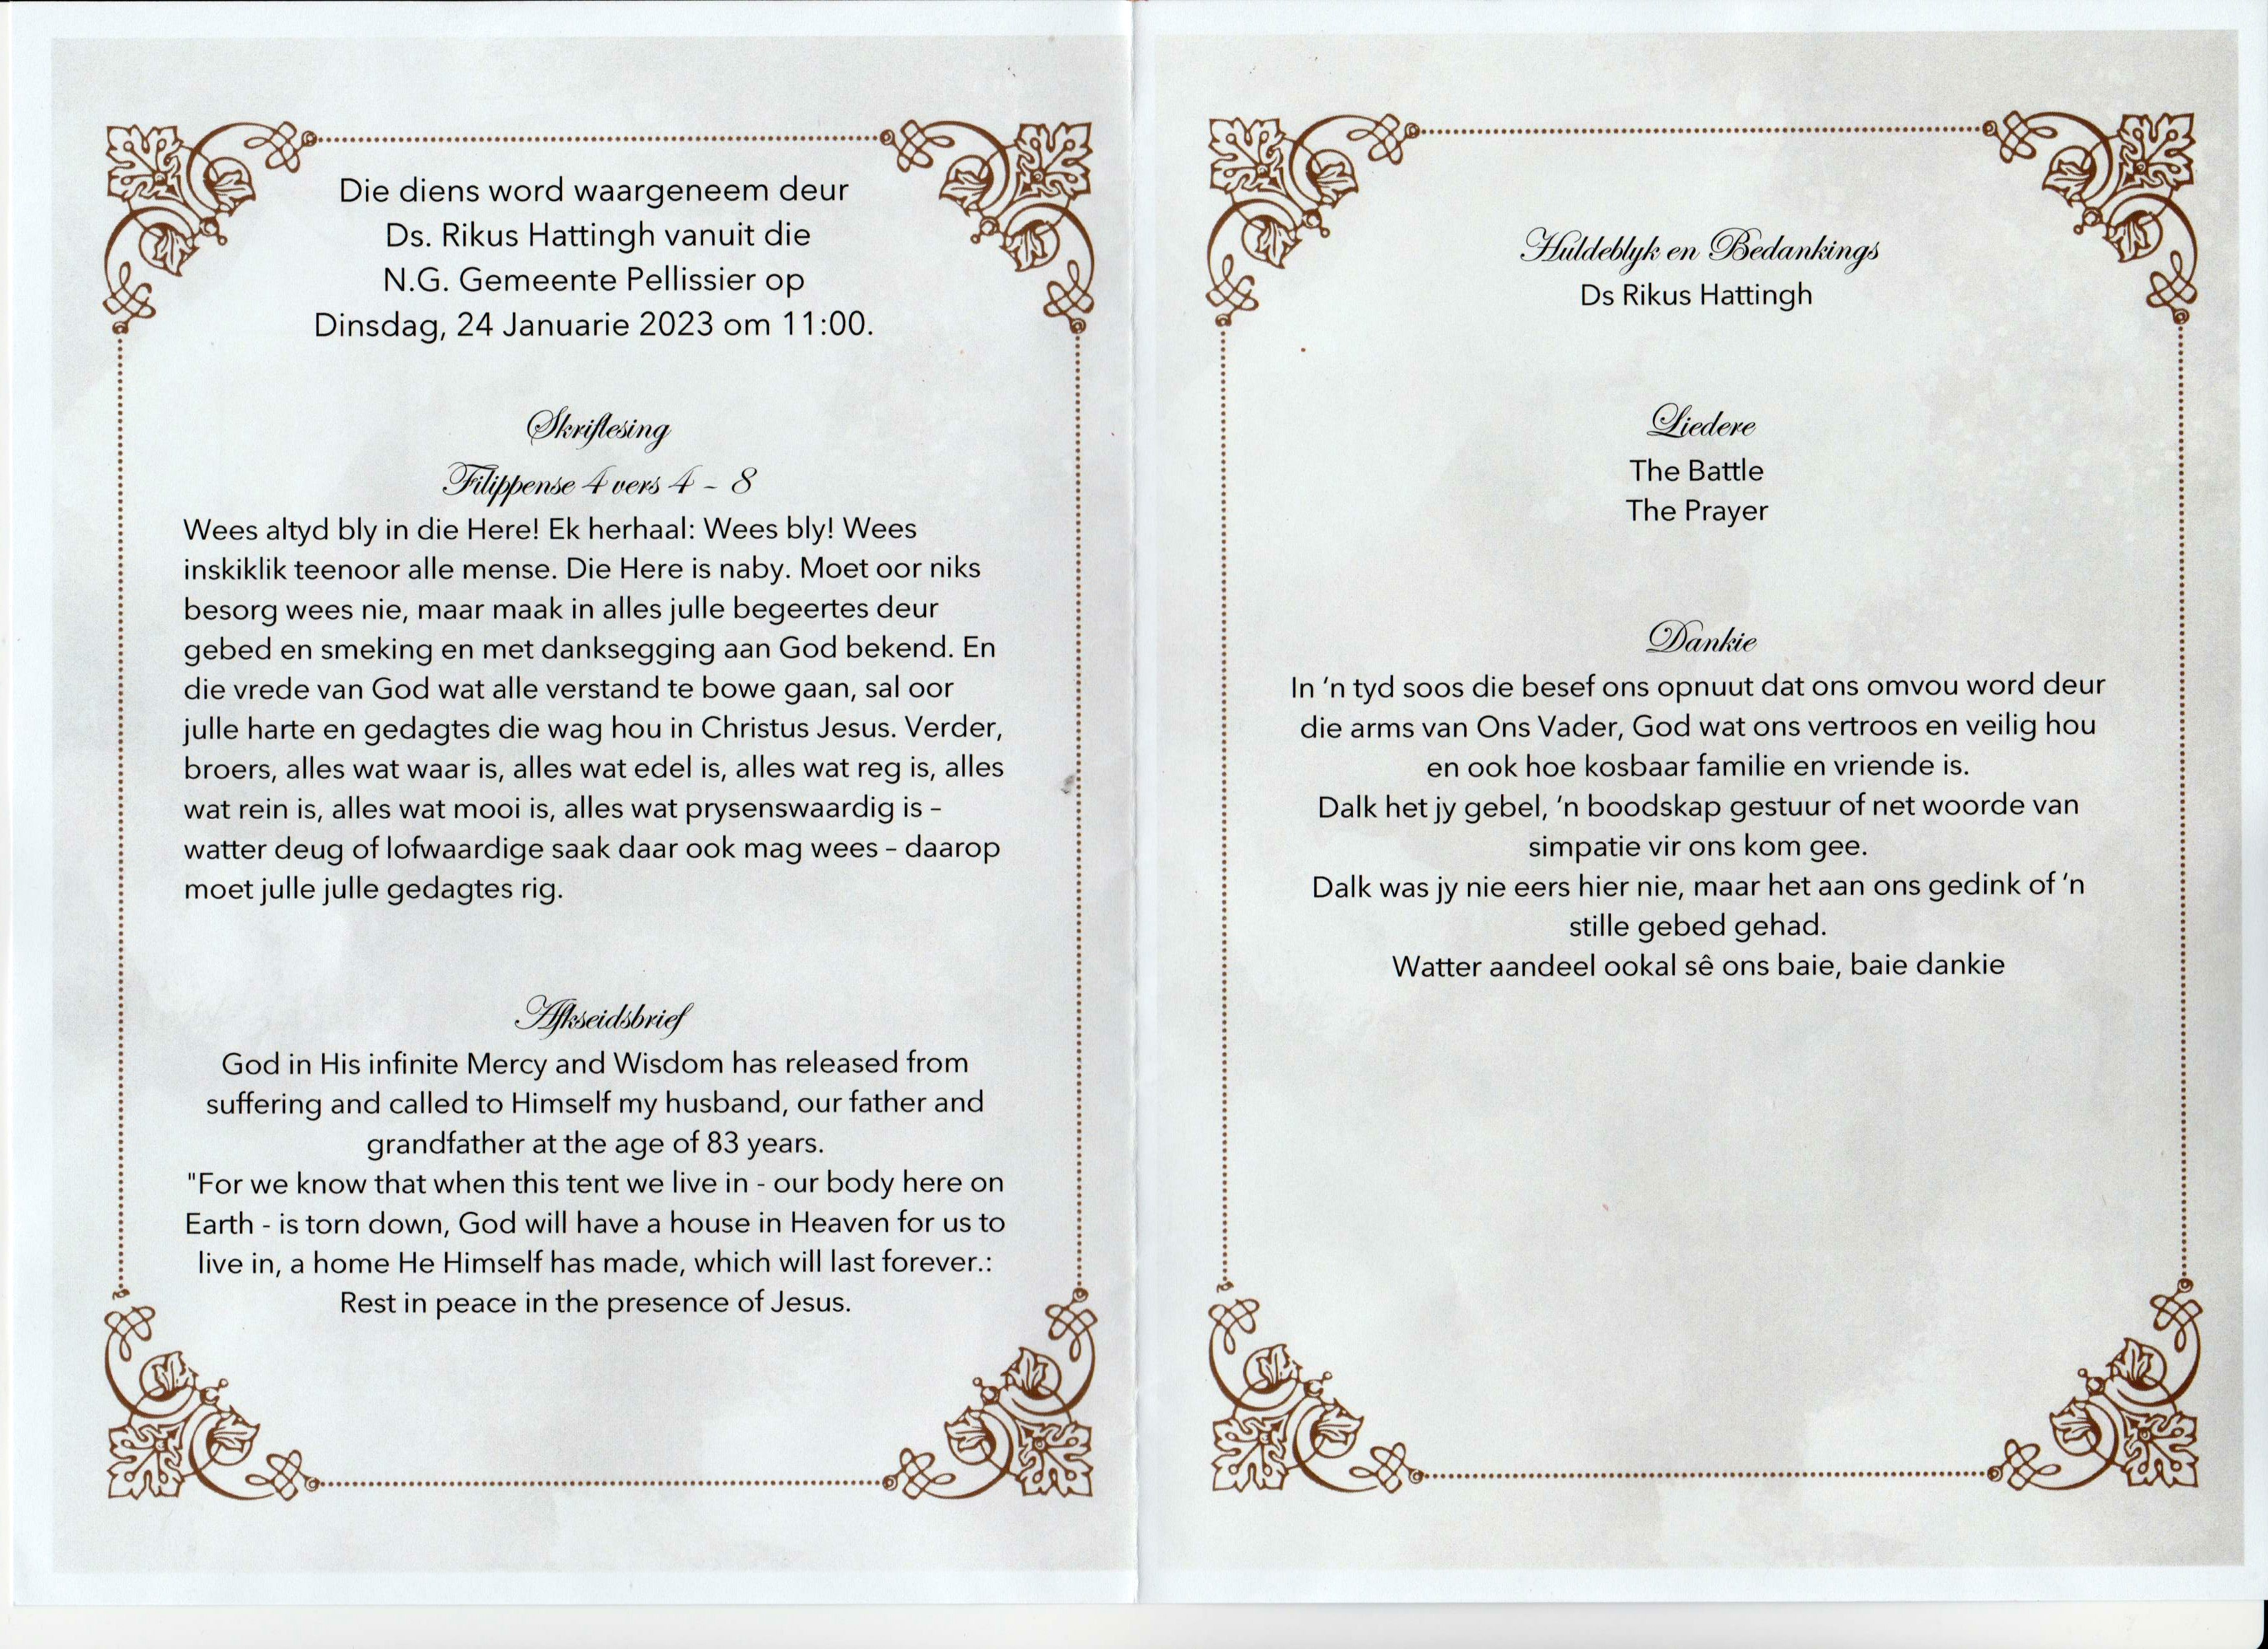 Die diens word waargeneem deur
Ds. Rikus Hattingh vanuit die
N.G. Gemeente Pellissier op
Dinsdag, 24 Januarie 2023 om 11:00.
Skriflesing
Filippense 4 vers 4 – 8
Wees altyd bly in die Here! Ek herhaal: Wees bly! Wees
inskiklik teenoor alle mense. Die Here is naby. Moet oor niks
besorg wees nie, maar maak in alles julle begeertes deur
gebed en smeking en met danksegging aan God bekend. En
die vrede van God wat alle verstand te bowe gaan, sal oor
julle harte en gedagtes die wag hou in Christus Jesus. Verder,
broers, alles wat waar is, alles wat edel is, alles wat reg is, alles
wat rein is, alles wat mooi is, alles wat prysenswaardig is –
watter deug of lofwaardige saak daar ook mag wees – daarop
moet julle julle gedagtes rig.
Afkseidsbrief
God in His infinite Mercy and Wisdom has released from
suffering and called to Himself my husband, our father and
grandfather at the age of 83 years.
"For we know that when this tent we live in - our body here on
Earth - is torn down, God will have a house in Heaven for us to
live in, a home He Himself has made, which will last forever.:
Rest in peace in the presence of Jesus.
Huldeblyk en Bedankings
Ds Rikus Hattingh
Liedere
The Battle
The Prayer
Dankie
In ‘n tyd soos die besef ons opnuut dat ons omvou word deur
die arms van Ons Vader, God wat ons vertroos en veilig hou
en ook hoe kosbaar familie en vriende is.
Dalk het jy gebel, ‘n boodskap gestuur of net woorde van
simpatie vir ons kom gee.
Dalk was jy nie eers hier nie, maar het aan ons gedink of ‘n
stille gebed gehad.
Watter aandeel ookal sê ons baie, baie dankie